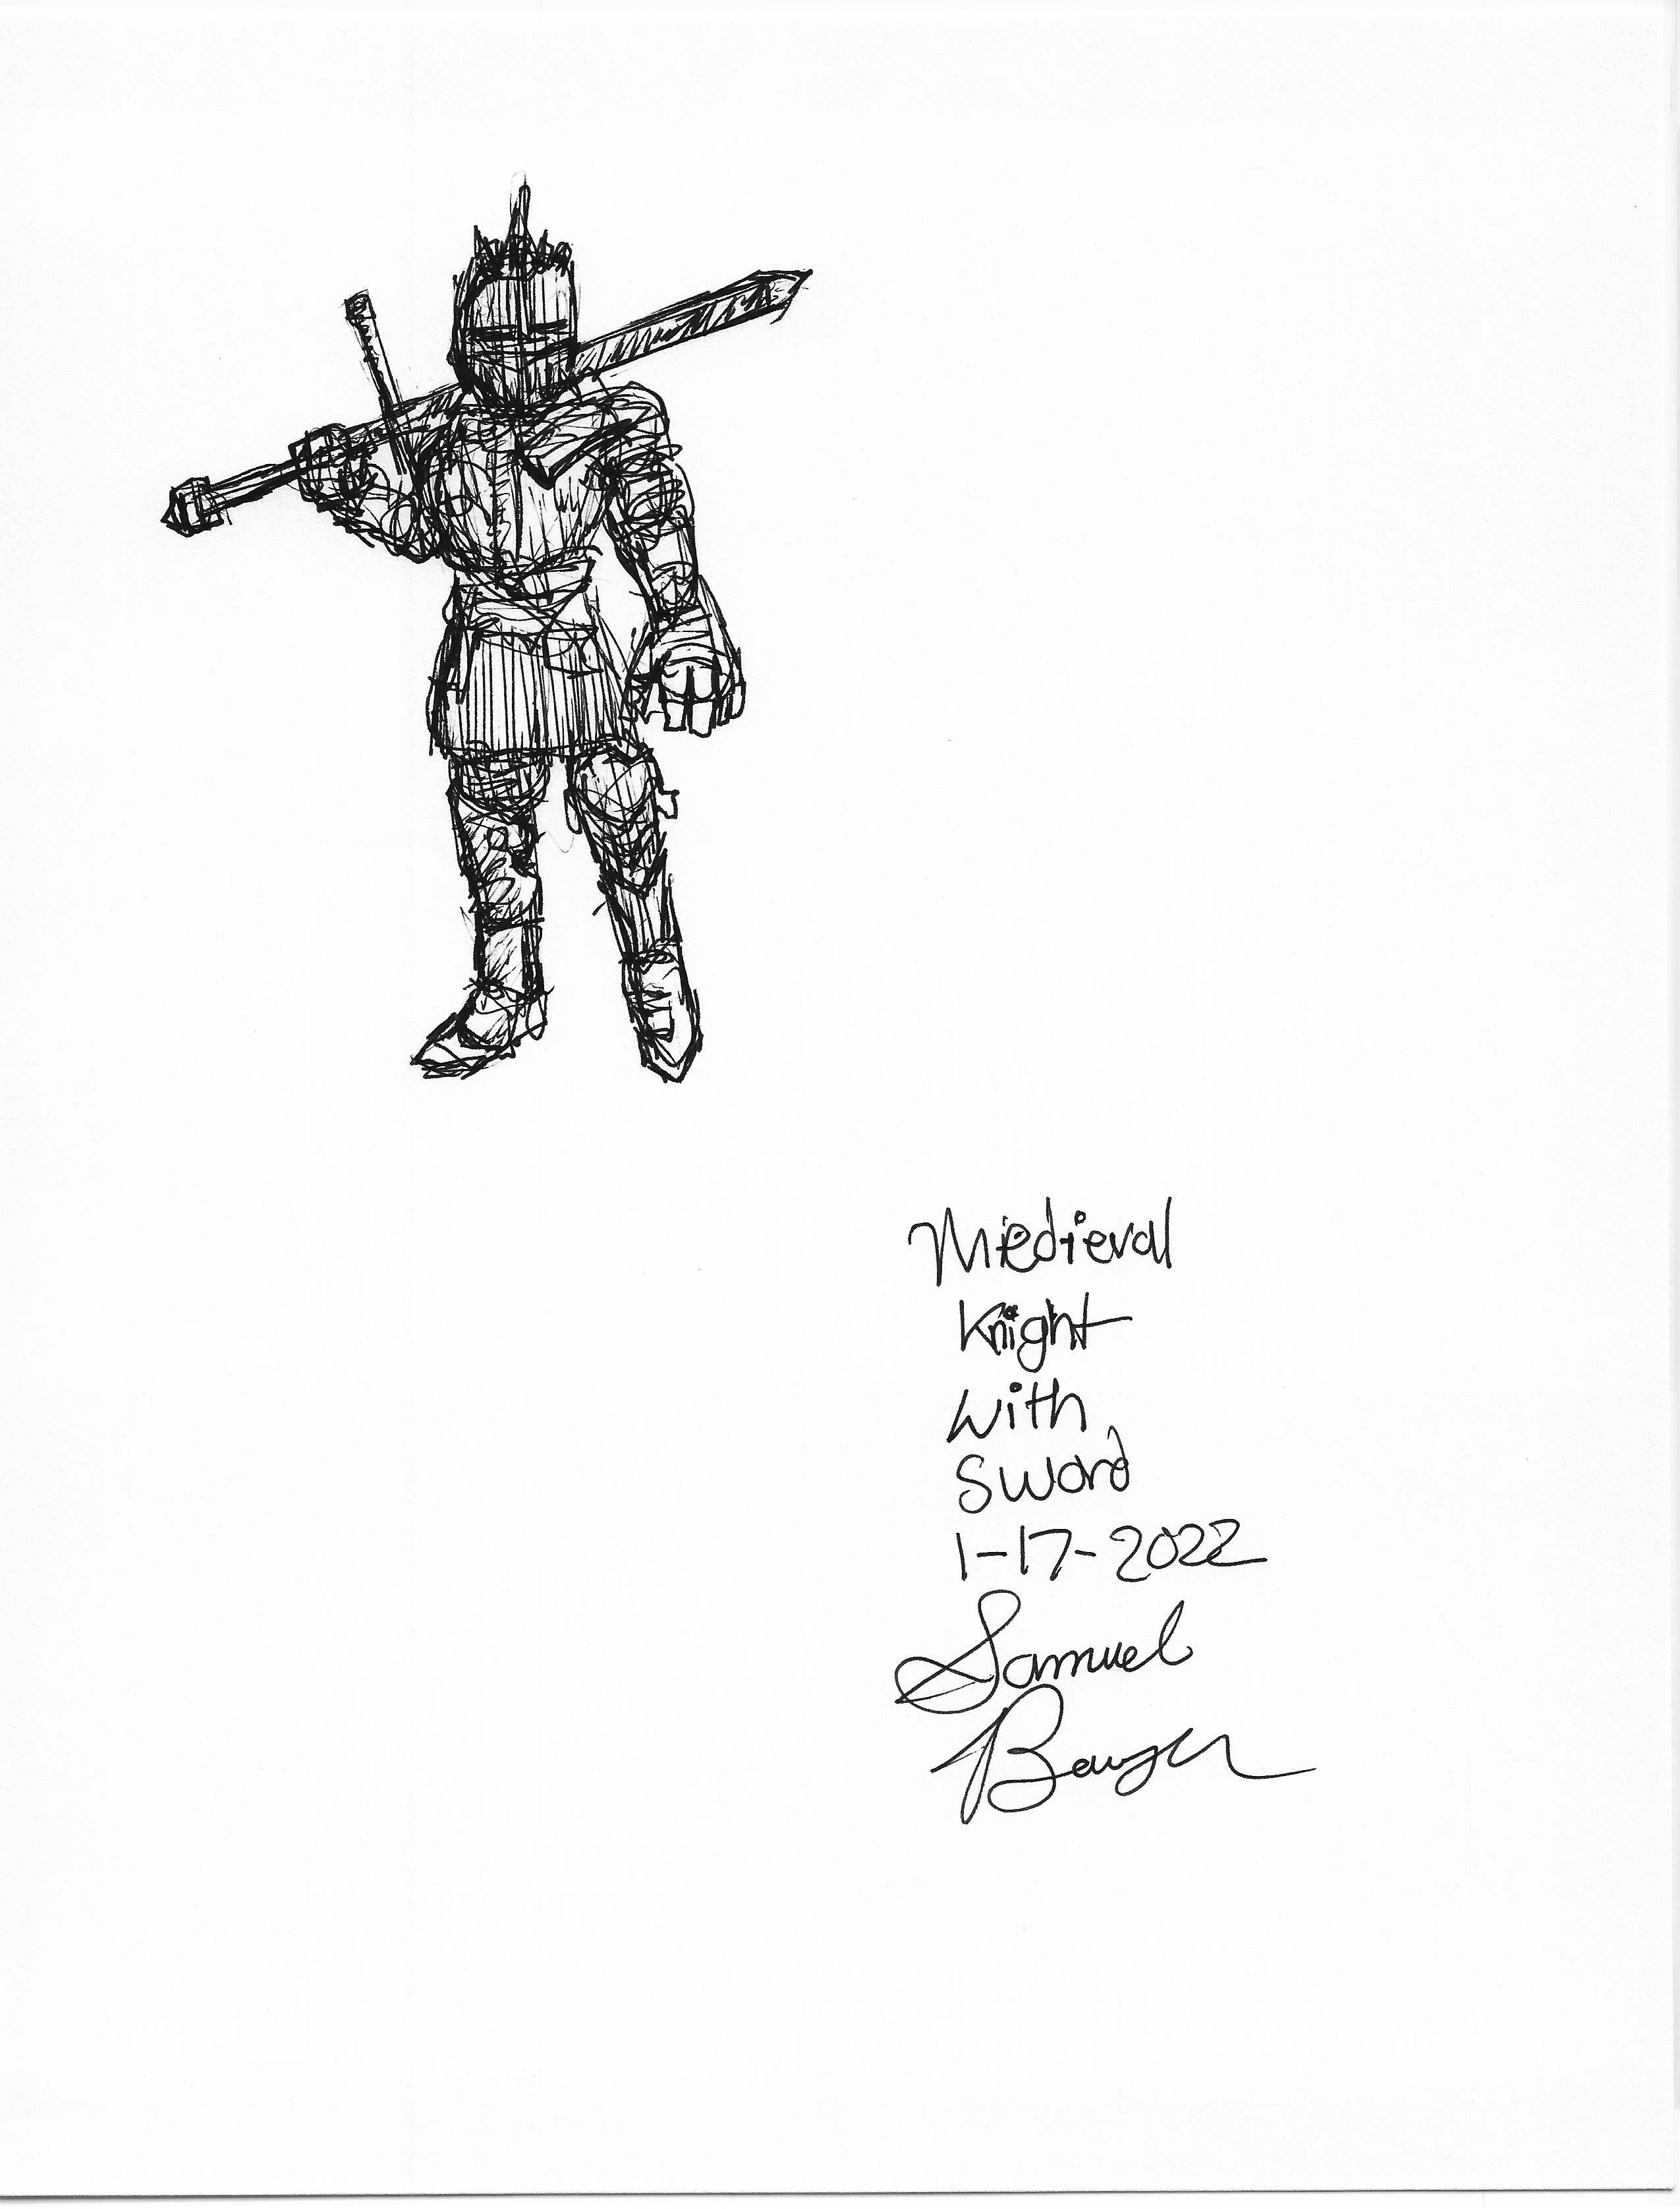 Medieval
Knight
With
Sword
1-17-2022
Samuel